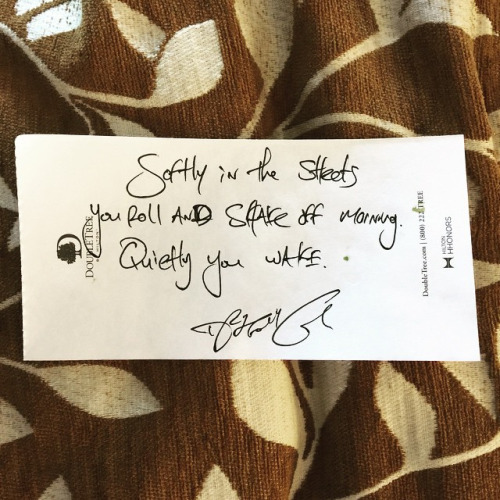 Softly in the Streets
You Roll AND SHAKE off morning.
Quietly you WAKE.
DOUBLETREE
DoubleTree.com | (800) 222 TREE
HILTON
HHONORS